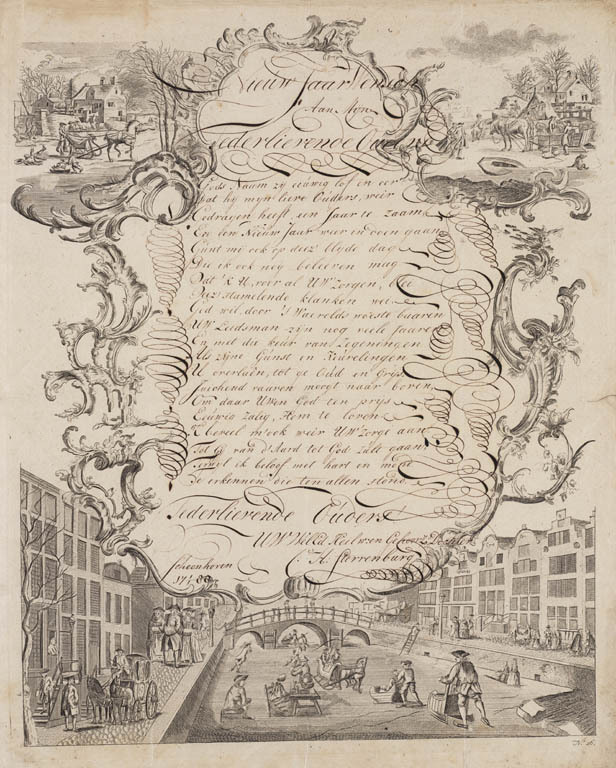 Nieuw Jaar Wensch
Aan Mijne
Tederlievende Ouders
Gods Naam zij eeuwig lof en eer
Dat hij myn lieve Ouders, weer
Gedragen heeft, een Jaar te zaam
En een Nieuw Jaar weer in doen gaan
Gunt mij ook op deez' blyde dag
Die ik ook nog beleeven mag
Dat 'k U, voor al UW zorgen,
Deez' stamelende klanken
God wil, door 's Waerelds woeste baaren
UW Leidsman zijn nog veele Jaaren
En met die keur van Zegeningen
Als zijne Gunst en
U overlaên, tot ge Oud en Grijs
Juichend vaaren moogt naar boven,
Om daar UWen God ten prijs
Eeuwig zalig, Hem te loven
'k Beveel m'ook weêr UW zorge aan
Tot Gij van d'Aard tot God zult gaan,
Terwijl ik beloof met hart en mond
Te erkennen die ten allen stond
Tederlievende Ouders
UW
C. H. Sterrenburg
Schoonhoven
No. 16.